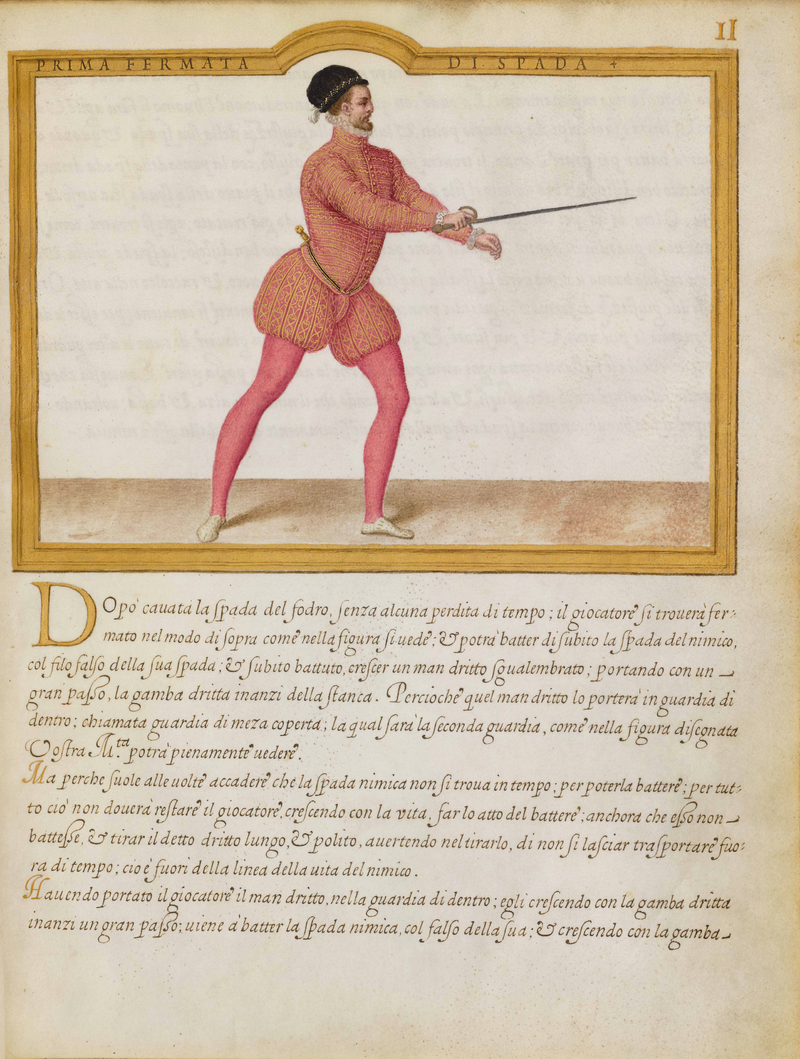 II
PRIMA FERMATA DI SPADA +
DOpo' cauata la ſpada del fodro, ſenza alcuna perdita di tempo; il giocatore' ſi trouerà fer:
mato nel modo di ſopra come' nella figura ſi uede'; & potrà batter di ſubito la ſpada del nimico,
col filo falſo della ſua ſpada; & ſubito battuto, creſcer un man dritto ſgualembrato; portando con un
gran paſſo, la gamba dritta inanzi della ſtanca. Percioche' quel man dritto lo porterà in guardia di
dentro; chiamata guardia di meza coperta; la qual ſarà la ſeconda guardia, come' nella figura diſegnata
Voſtra M.tà potrà pienamente' uedere'.
Ma perche ſuole alle uolte' accadere' che la ſpada nimica non ſi troua in tempo; per poterla battere'; per tut:
to ciò non douerà reſtare' il giocatore', creſcendo con la vita, far lo atto del battere'; anchora che eſſo non
batteſſe, & tirar il detto dritto lungo, & polito, auertendo nel tirarlo, di non ſi laſciar traſportare' fuo:
ra di tempo; cio è fuori della linea della uita del nimico.
Hauendo portato il giocatore' il man dritto, nella guardia di dentro; egli creſcendo con la gamba dritta
inanzi un gran paſſo; uiene à batter la ſpada nimica, col falſo della ſua; & creſcendo con la gamba